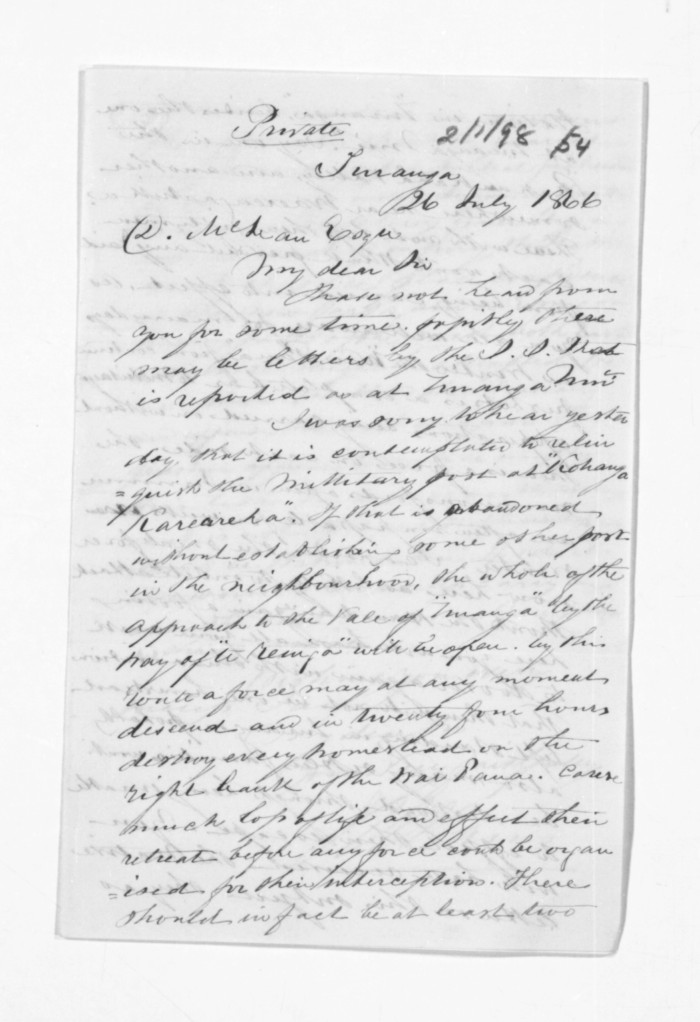 Private
2/1/98 54
Turanga
26 July 1866
D. McLean Esqre
My dear Sir
I have not heard from
you for some time. possibly there
may be letters by the S. S. that
is reported as at Turanga
I was sorry to hear yester
day, that it is contemplated to relin
=quish the Millitary post at "Kohanga
Kareareka". If that is abandoned
without establishing some other post
in the neighbourhood, the whole of the
approach to the Vale of "Turanga" by the
way of "te Reinga" will be open. by this
route a force may at any moment
descend and in twenty four hours
destroy every homestead on the
right bank of the Wai Paoa. cause
much loss of life and effect their
retreat before any force could be organ
=ised for their interception. There
should in fact be at least two